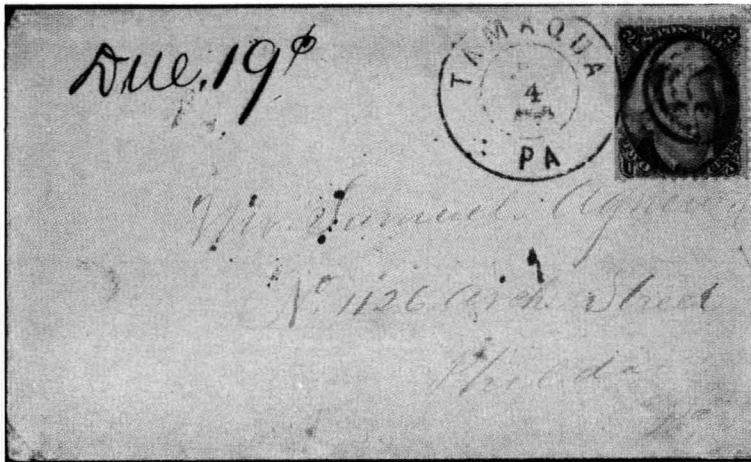 Due. 19¢
TAMAQUA
4
PA
Mr. Samuel Agnew
No 1126 Arch Street
Philada